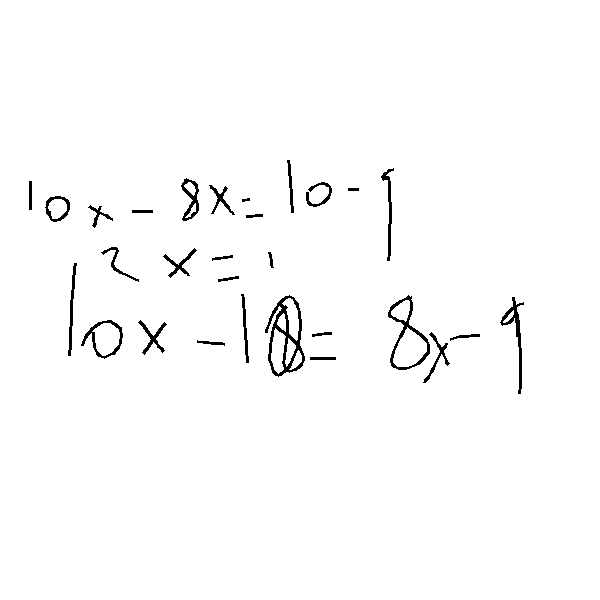 10x - 8x = 10 - 9
2x = 1
10x - 10 = 8x - 9